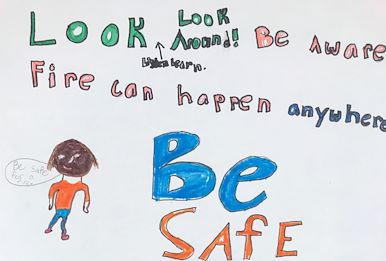 Look Look Around! Be Aware
Listen Learn.
Fire can happen anywhere
Be safe
Be
SAfE